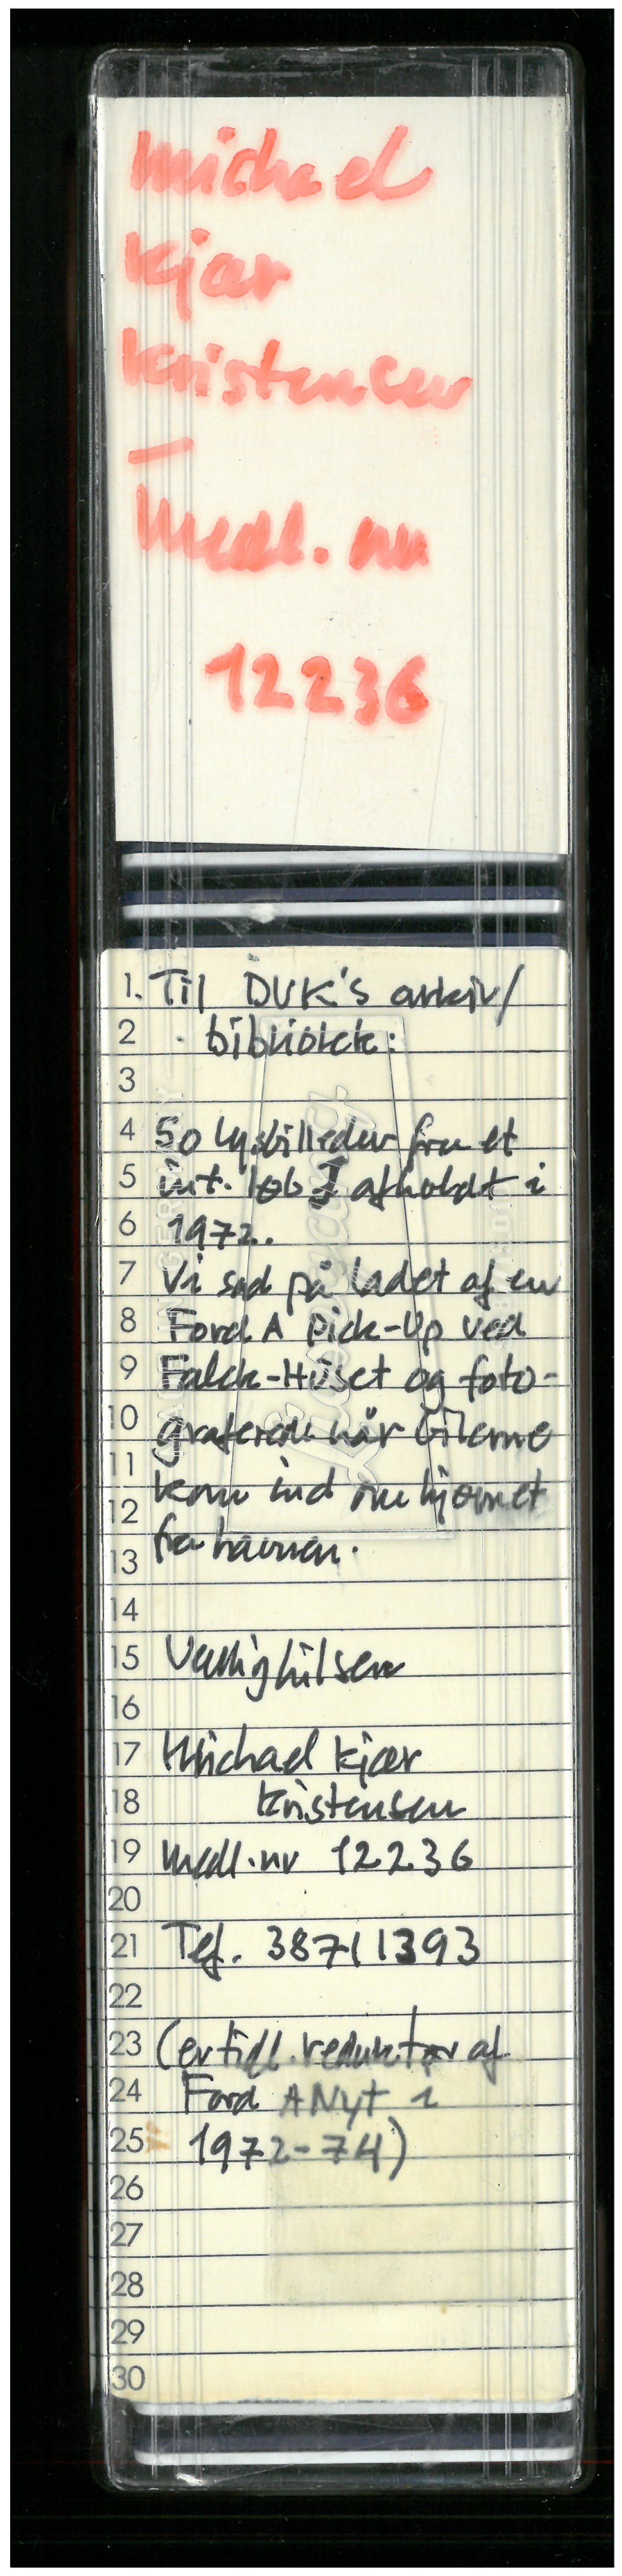 michael
kjær
kristensen
—
medl. nr
12236
1. Til DVK's arkiv/
2 bibliotek:
3
4 50 lysbilleder fra et
5 int. løb afholdt i
6 1972.
7 Vi sad på ladet af en
8 Ford A Pick-Up ved
9 Falck-Huset og foto-
10 graferede når bilerne
11
12 kom ind om hjørnet
13 fra havnen.
14
15 Venlig hilsen
16
17 Michael Kjær
18 Kristensen
19 medl.nr 12236
20
21 Tlf. 38711393
22
23 (er tidl. redaktør af
24 Ford A Nyt i
25 1972-74)
26
27
28
29
30